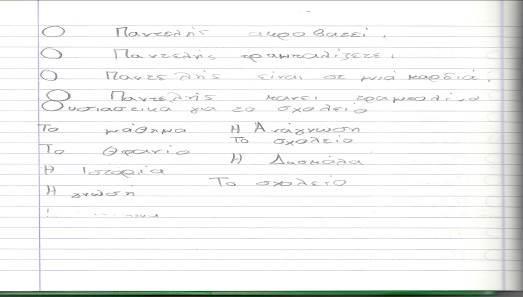 Ο Παντελής ακροβατεί.
Ο Παντελής τραμπαλίζετε.
Ο Παντελής είναι σε μιά καρδιά.
Ο Παντελής κανει τραμπολίνο
Ουσιαστικά για το σχολείο
Το μάθημα Η Ανάγνωση
Το σχολείο
Το Θρανίο Η Δασκάλα
Η Ιστορία Το σχολείο
Η γνώση